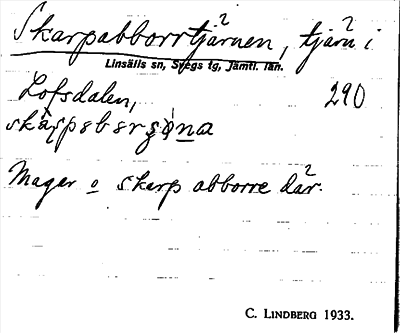 Skarpabborrtjärnen, tjärn i
Linsälls sn, Svegs tg, Jämtl. län.
Lofsdalen, 290
Mager o skarp abborre där.
C. LINDBERG 1933.